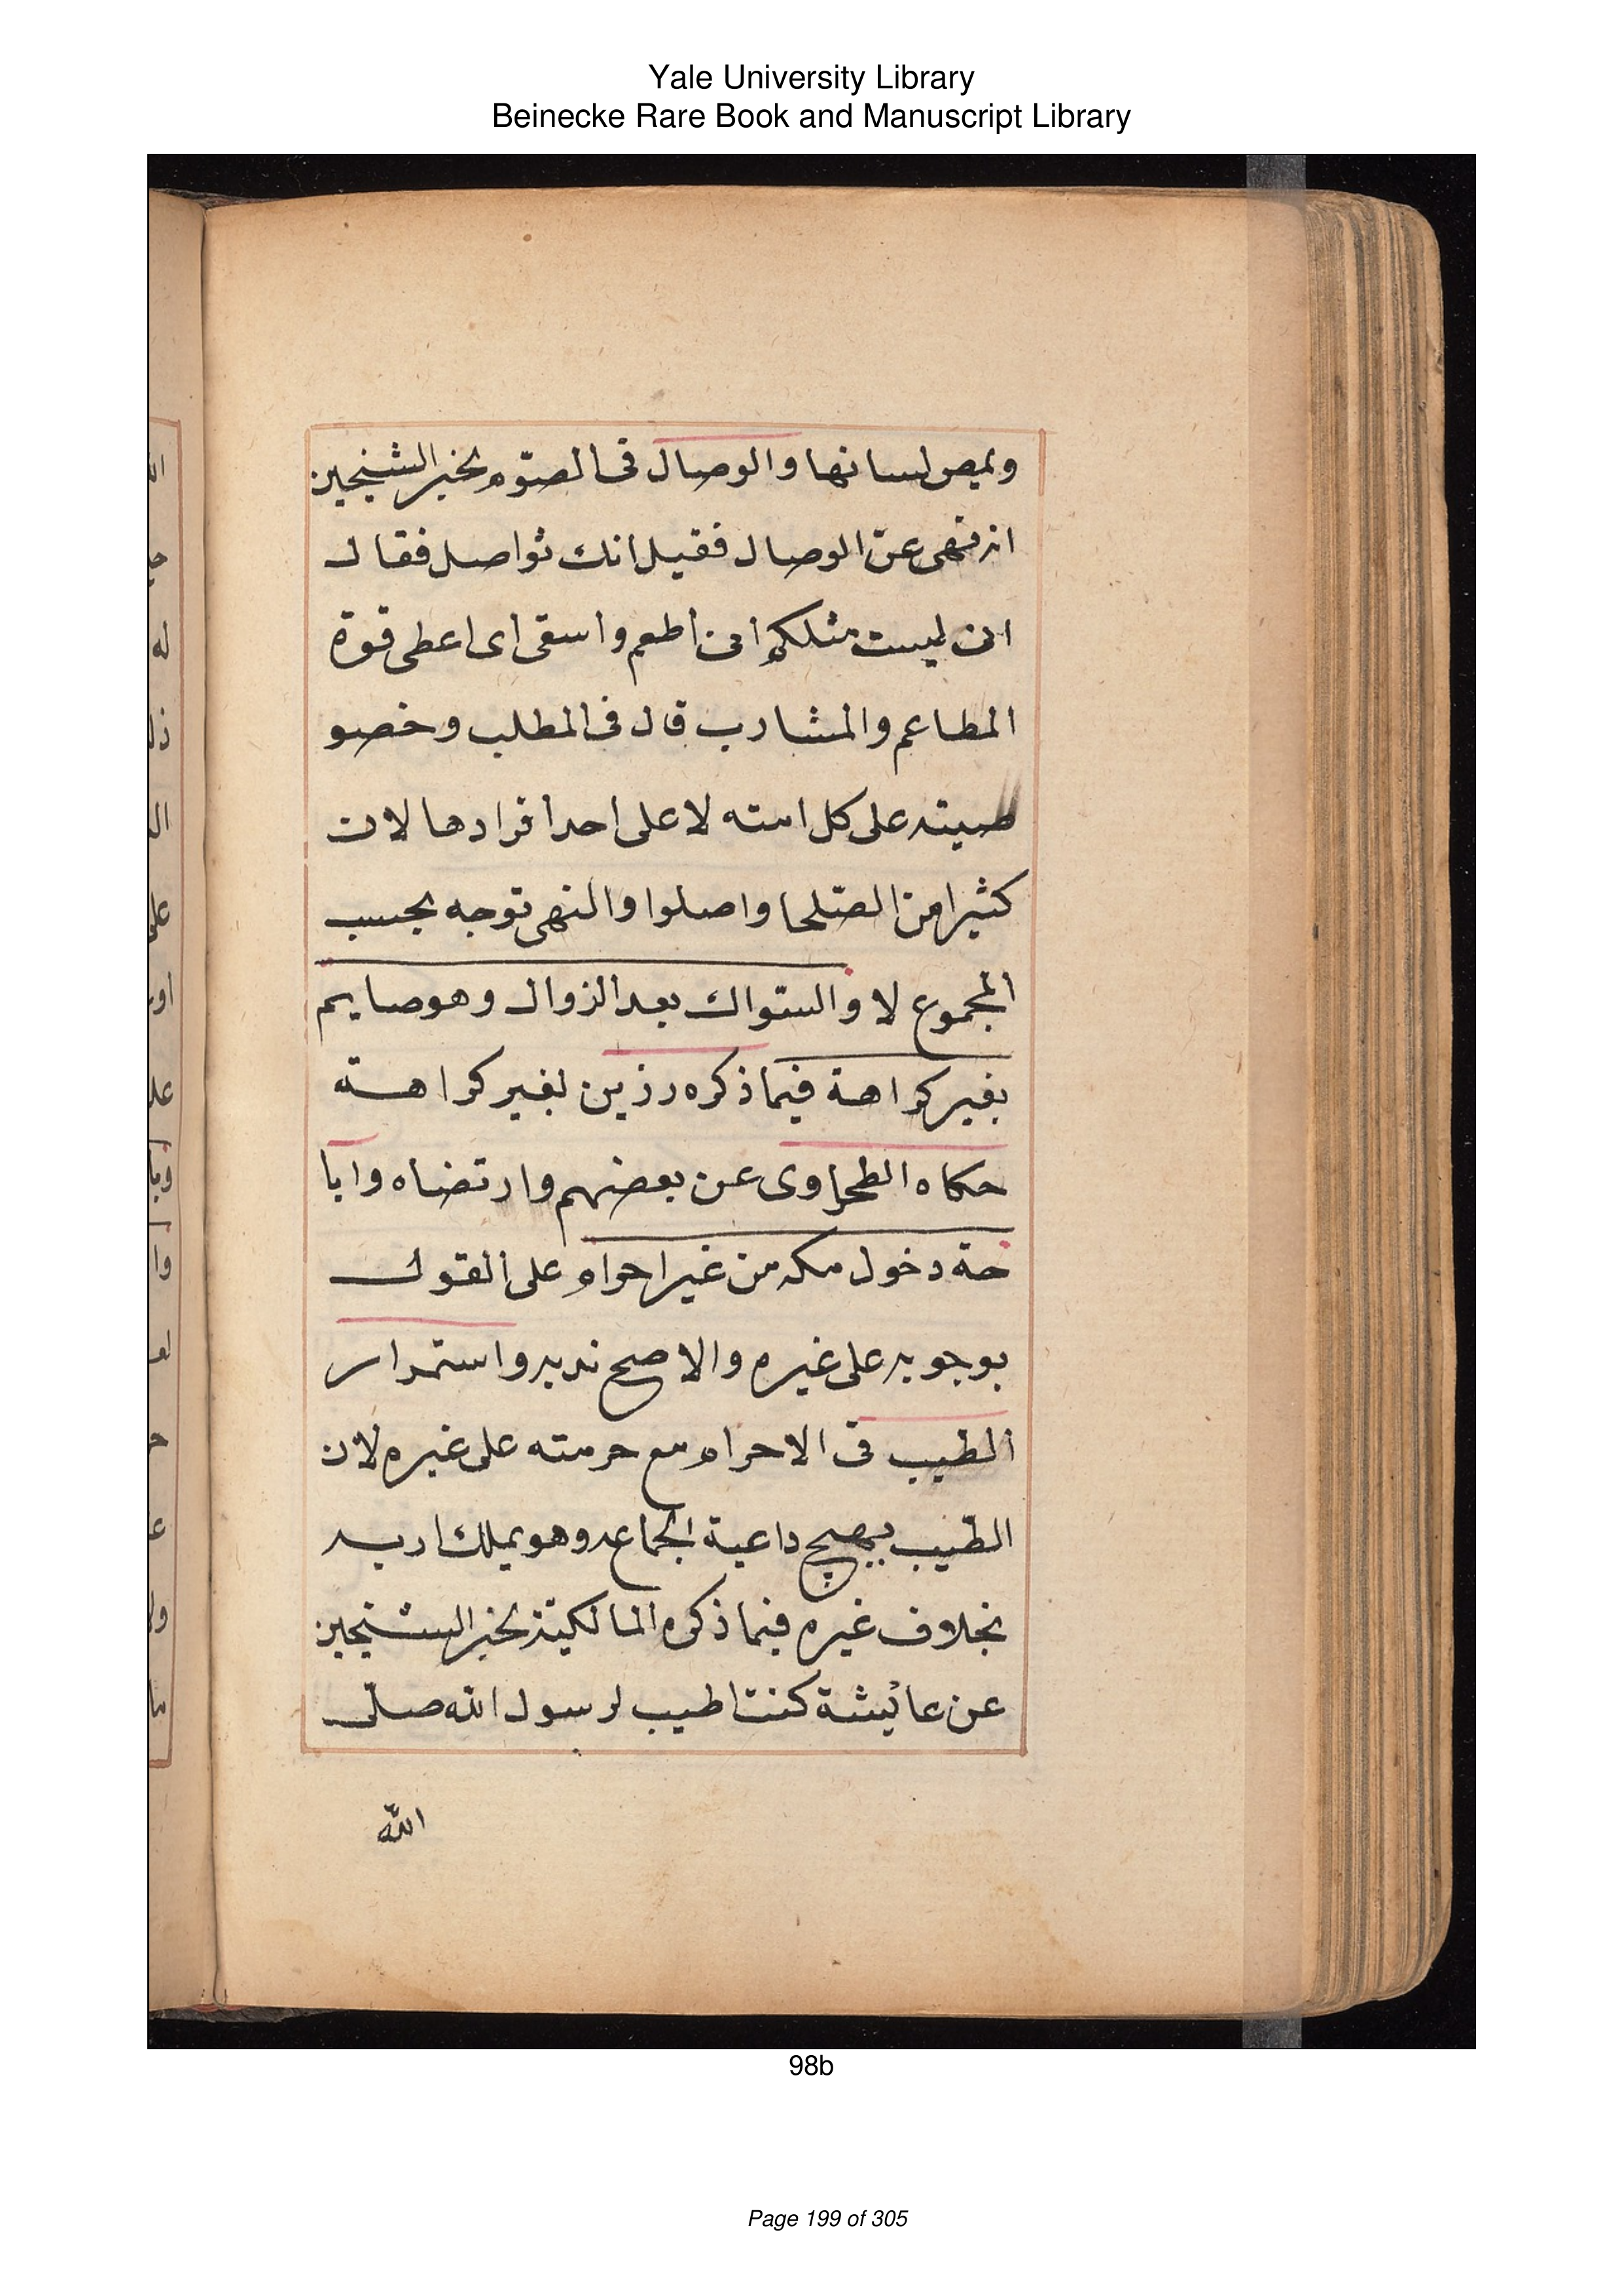 Yale University Library
Beinecke Rare Book and Manuscript Library
ويمص لسانها والوصال فى الصوم بخبر الشيخين
انه نهى عن الوصال فقيل انك تواصل فقال
انى ليست مثلكم انى اطعم واسقى اى اعطى قوة
المطاعم والمشارب قال فى المطلب وخصو
صيته على كل امته لا على احد افرادها لان
كثيرا من الصلحا واصلوا والنهى توجه بحسب
المجموع لا والسواك بعد الزوال وهو صايم
بغير كراهة فيما ذكره رزين بغير كراهته
حكاه الطحاوى عن بعضهم وارتضاه وابا
حة دخول مكه من غير احرام على القول
بوجوبه على غيره والاصح ندبه واستمرار
الطيب فى الاحرام مع حرمته على غيره لان
الطيب يهيج داعية الجماع وهو يملك اربه
بخلاف غيره فيما ذكره المالكية بخبر الشيخين
عن عائيشة كنت اطيب لرسول الله صلى
الله
98b
Page 199 of 305